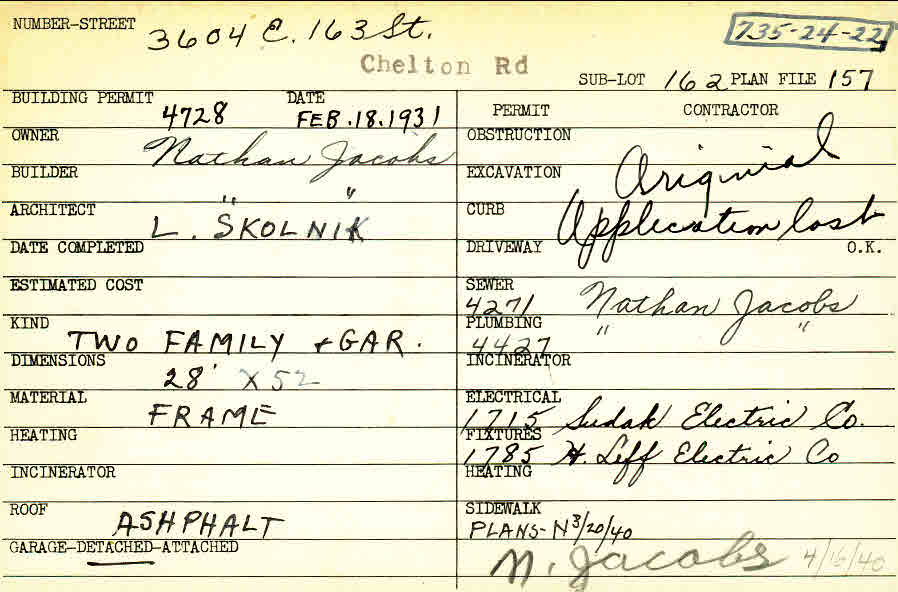 NUMBER-STREET 3604 E. 163 St. 735-24-22
Chelton Rd
SUB-LOT 162 PLAN FILE 157
BUILDING PERMIT 4728 DATE FEB.18.1931
OWNER Nathan Jacobs
BUILDER " "
ARCHITECT L. SKOLNIK
DATE COMPLETED
ESTIMATED COST
KIND TWO FAMILY + GAR.
DIMENSIONS 28' X 52
MATERIAL FRAME
HEATING
INCINERATOR
ROOF ASHPHALT
GARAGE-DETACHED-ATTACHED
PERMIT CONTRACTOR
OBSTRUCTION
EXCAVATION Originial
CURB Application lost
DRIVEWAY O.K.
SEWER
4271 Nathan Jacobs
PLUMBING " "
4427
INCINERATOR
ELECTRICAL
1715 Sudak Electric Co.
FIXTURES
1785 H. Leff Electric Co
HEATING
SIDEWALK
PLANS-N 3/20/40
N. Jacobs 4/16/40